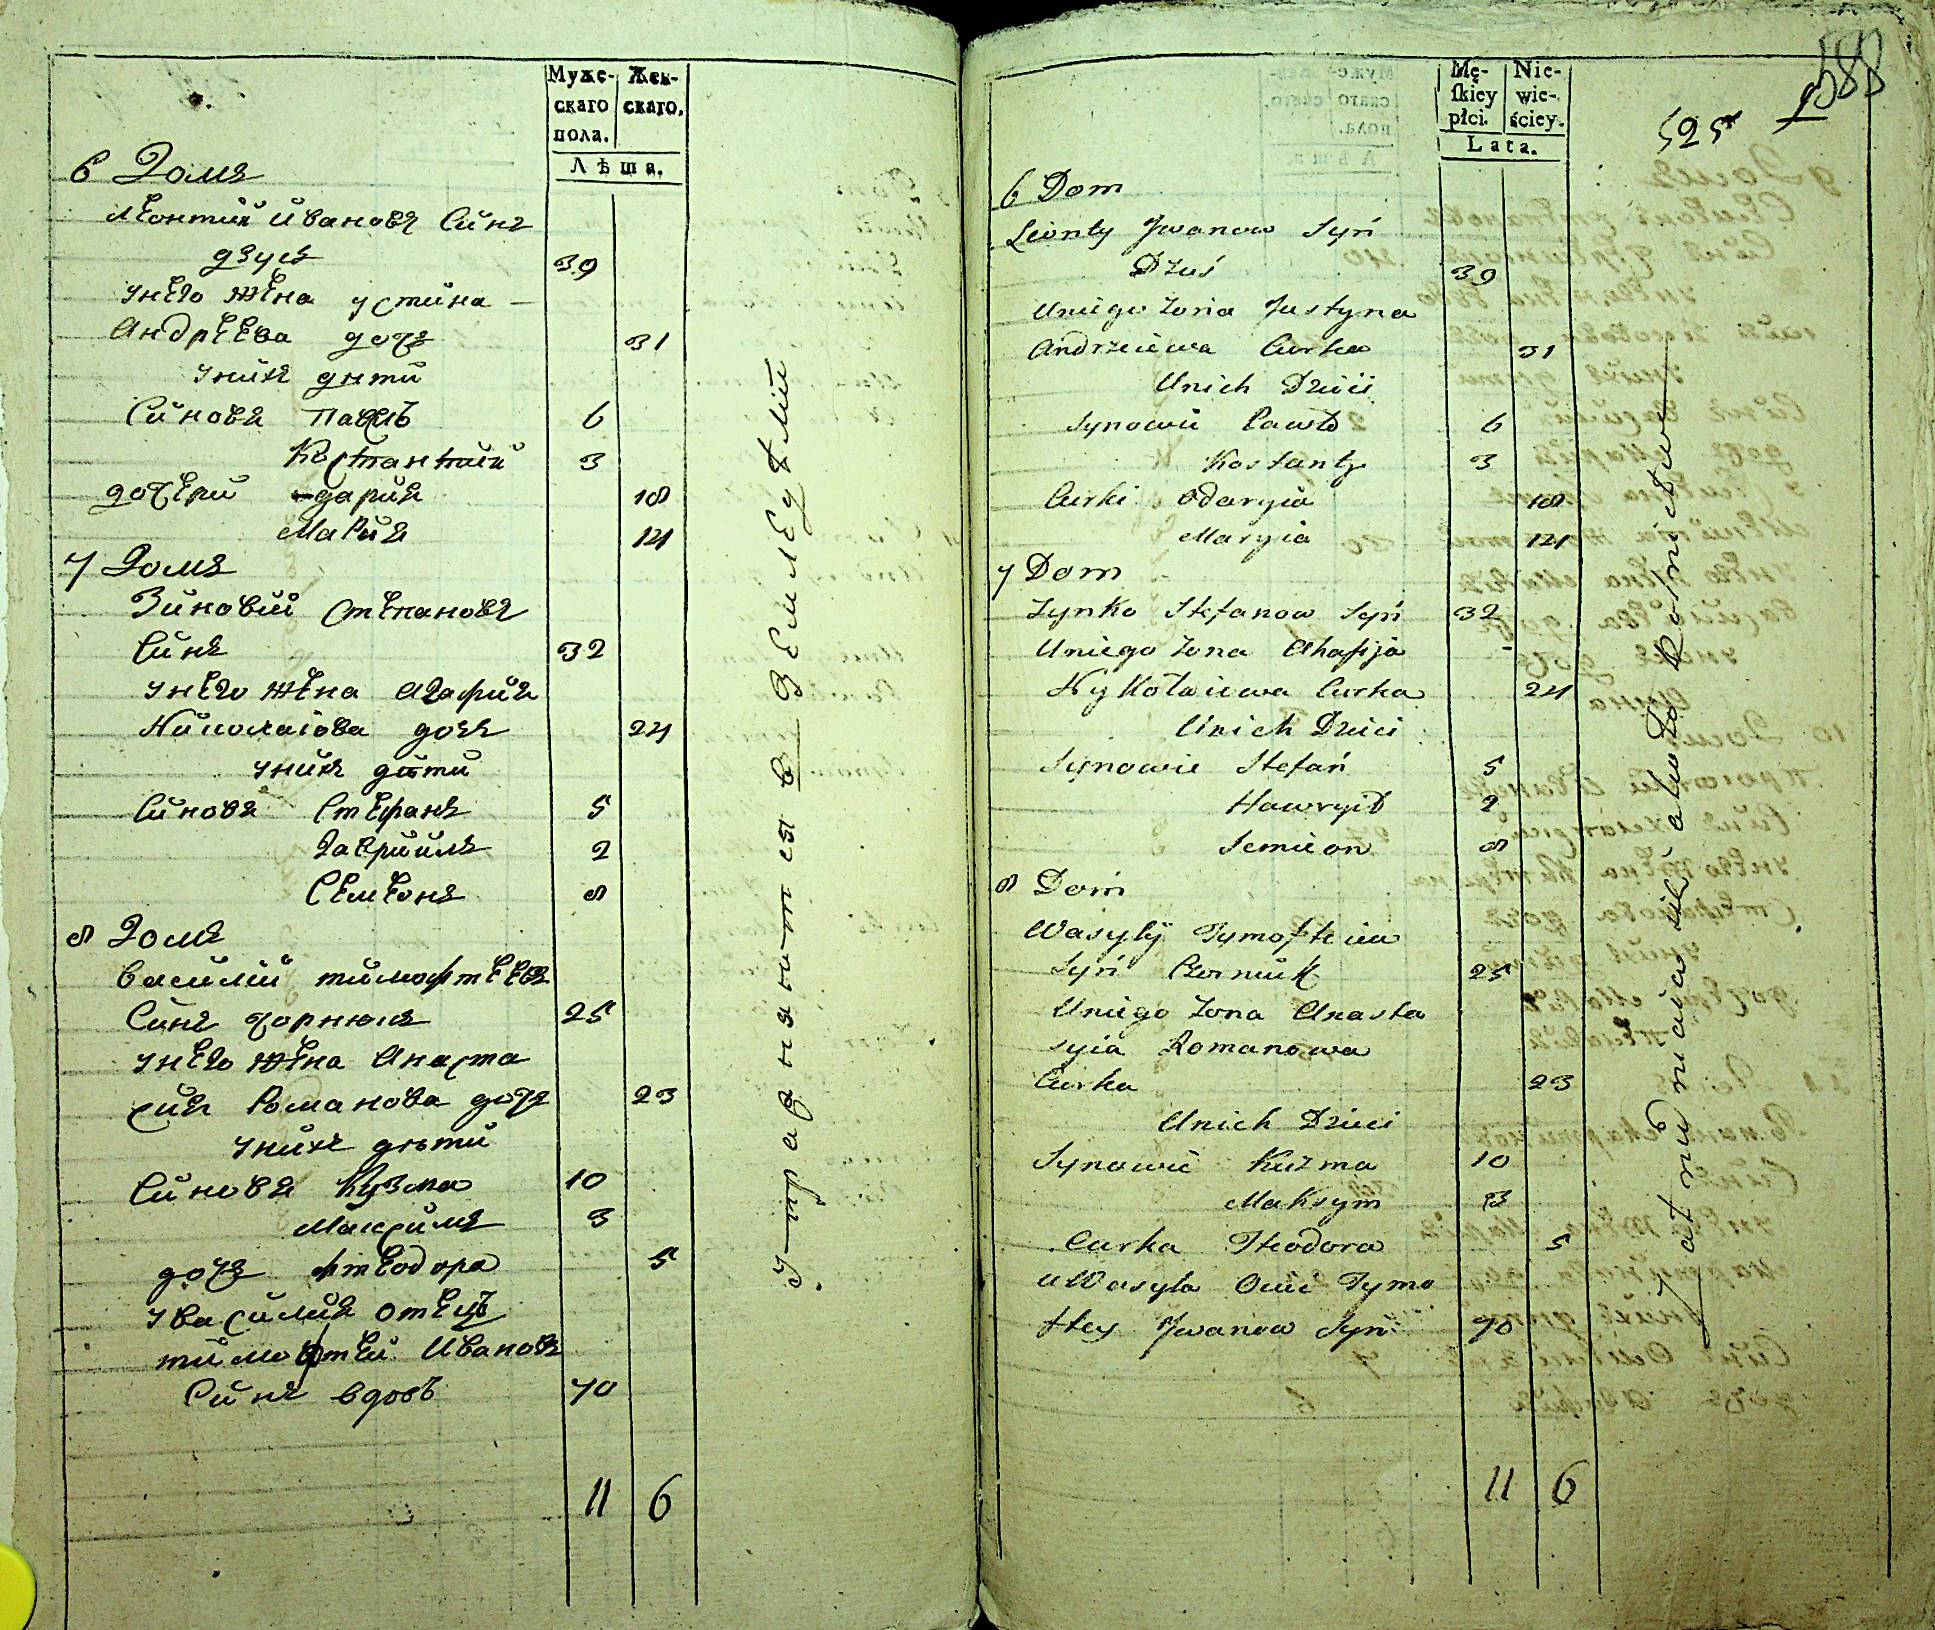 Муже-
скаго
пола.
Жен-
скаго.
Лѣта.
6 Домъ
Леонтий Ивановъ Синъ
дзусь 39
унего жена устина
Андреева дочь 31
унихъ дѣти
Синовя Павелъ 6
Костантий 3
дочери одария 18
Мария 14
7 Домъ
Зиновий Степановъ
Синъ 32
унего жена агафия
Николаіова дочъ 24
унихъ дѣти
Синовя Стефанъ 5
Гавриилъ 2
Семеонъ 8
8 Домъ
василий тимофтеевъ
Синъ чорнюкъ 25
унего жена Анаста
сия Романова дочь 23
унихъ дѣти
Синовя Кузма 10
Максимъ 3
дочь фтеодора 5
уВасилия отецъ
тимофтей Ивановъ
Синъ вдовъ 70
11 6
Упражняются в Земледелии
588
525
Mę-
ſkiey
płci.
Nie-
wie-
ściey.
Lata.
6 Dom
Leonty Jwanow Syń
Dzuś 39
Uniego Zona Justyna
Andrzeiewa Curka 31
Unich Dzieci
Synowie Pawło 6
Kostanty 3
Curki Odaryia 18
Maryia 14
7 Dom
Zynko Stefanow Syń 32
Uniego Zona Ahafija
Nykołaiewa Curka 24
Unich Dzieci
Synowie Stefań 5
Hawryło 2
Semieon 8
8 Dom
Wasylÿ Tymofteiew
Syń Czorniuk 25
Uniego Zona Anasta
syia Romanowa
Curka 23
Unich Dzieci
Synowie Kuzma 10
Maksym 3
Curka Fteodora 5
u Wasyla Ociec Tymo
ftey Jwanow Syń 70
11 6
Zatrudniaią się około Rolnictwa